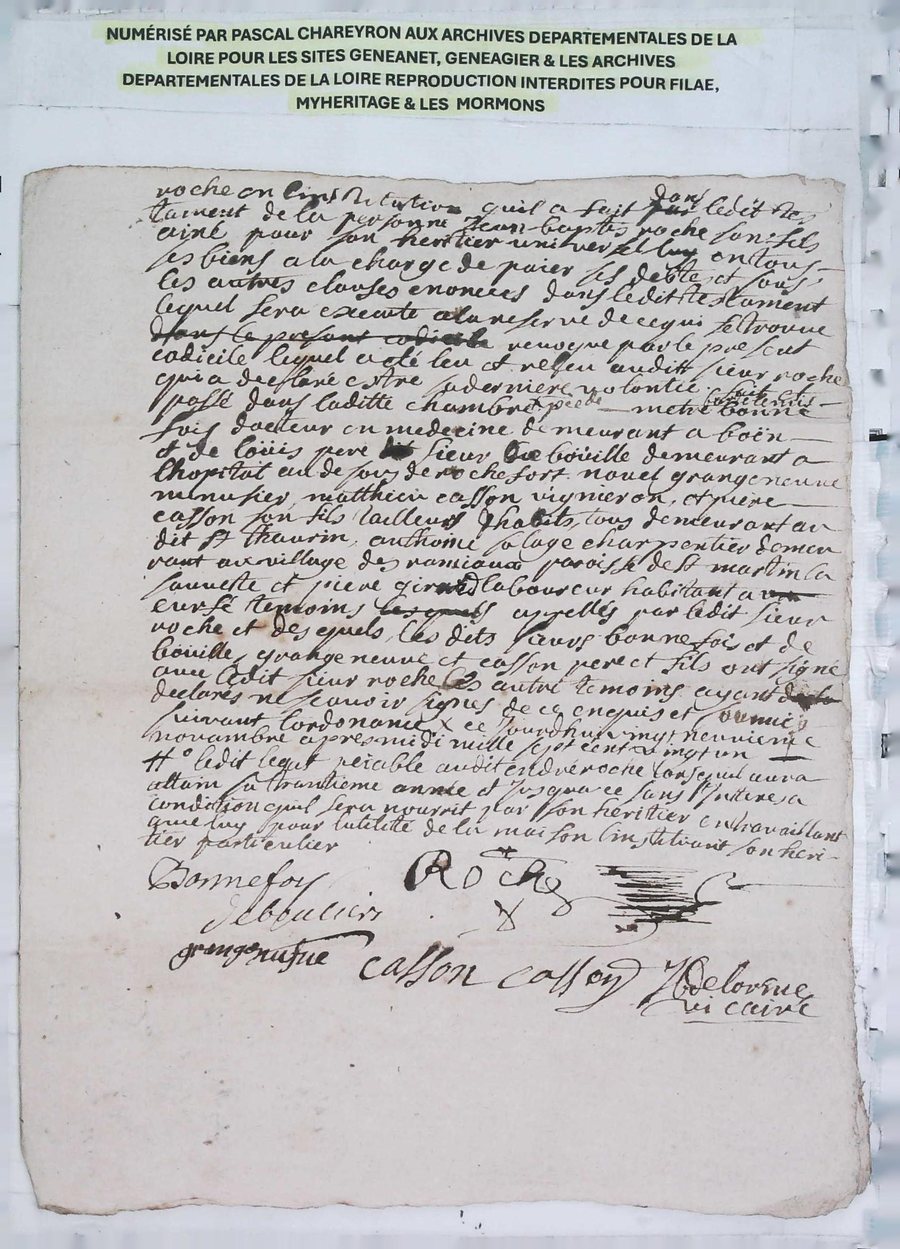 NUMÉRISÉ PAR PASCAL CHAREYRON AUX ARCHIVES DEPARTEMENTALES DE LA
LOIRE POUR LES SITES GENEANET, GENEAGIER & LES ARCHIVES
DEPARTEMENTALES DE LA LOIRE REPRODUCTION INTERDITES POUR FILAE,
MYHERITAGE & LES MORMONS
roche en linstitution quil a fait dans ledit tes
tament de la personne Jean baptis roche son fils
ainé pour son heritier universel en tous
ses biens a la charge de paier ses debte et sous
les autres clauses enoncés dans ledit testament
lequel sera execute a la reserve de ce qui se trouve
dans le present codicile revoque par le present
codicile lequel a eté leu et releu audit sieur roche
qui a declaré estre sa derniere volontée fait et
passé dans laditte chambre metre bonne
fois docteur en medecine demeurant a boën
et de loüis pere sieur de boüille demeurant a
lhopital au desous de rochefort noüel grangeneuve
menusier, matthieu casson vigneron, et piere
casson son fils tailleurs dhabits, tous demeurant au
dit st thaurin, anthoine salage charpentier demeu
rant au village des ramiaux paroisse de st martin la
sauveté et piere girard laboureur habitant a
cursé temoins lesquels appellés par ledit sieur
roche et desquels les dits sieurs bonnefois et de
boüilles, grangeneuve et casson pere et fils ont signé
avec ledit sieur roche les autre temoins ayant
declarés ne scavoir signes de ce enquis et
suivant lordonance x ce jourdhui vingt neuvieme
novambre apres midi mille sept cent vingt un
ledit legat paiable audit endré roche lorsquil aura
attain sa trantieme année et jusqua ce sans interes a
condition quil sera nourrit par son heritier en travaillant
que luy pour lutilite de la maison linstituant son heri-
tier particulier
Bonnefoy
Roche
debouliers
grangeneufue
casson casson
delorme
vicaire